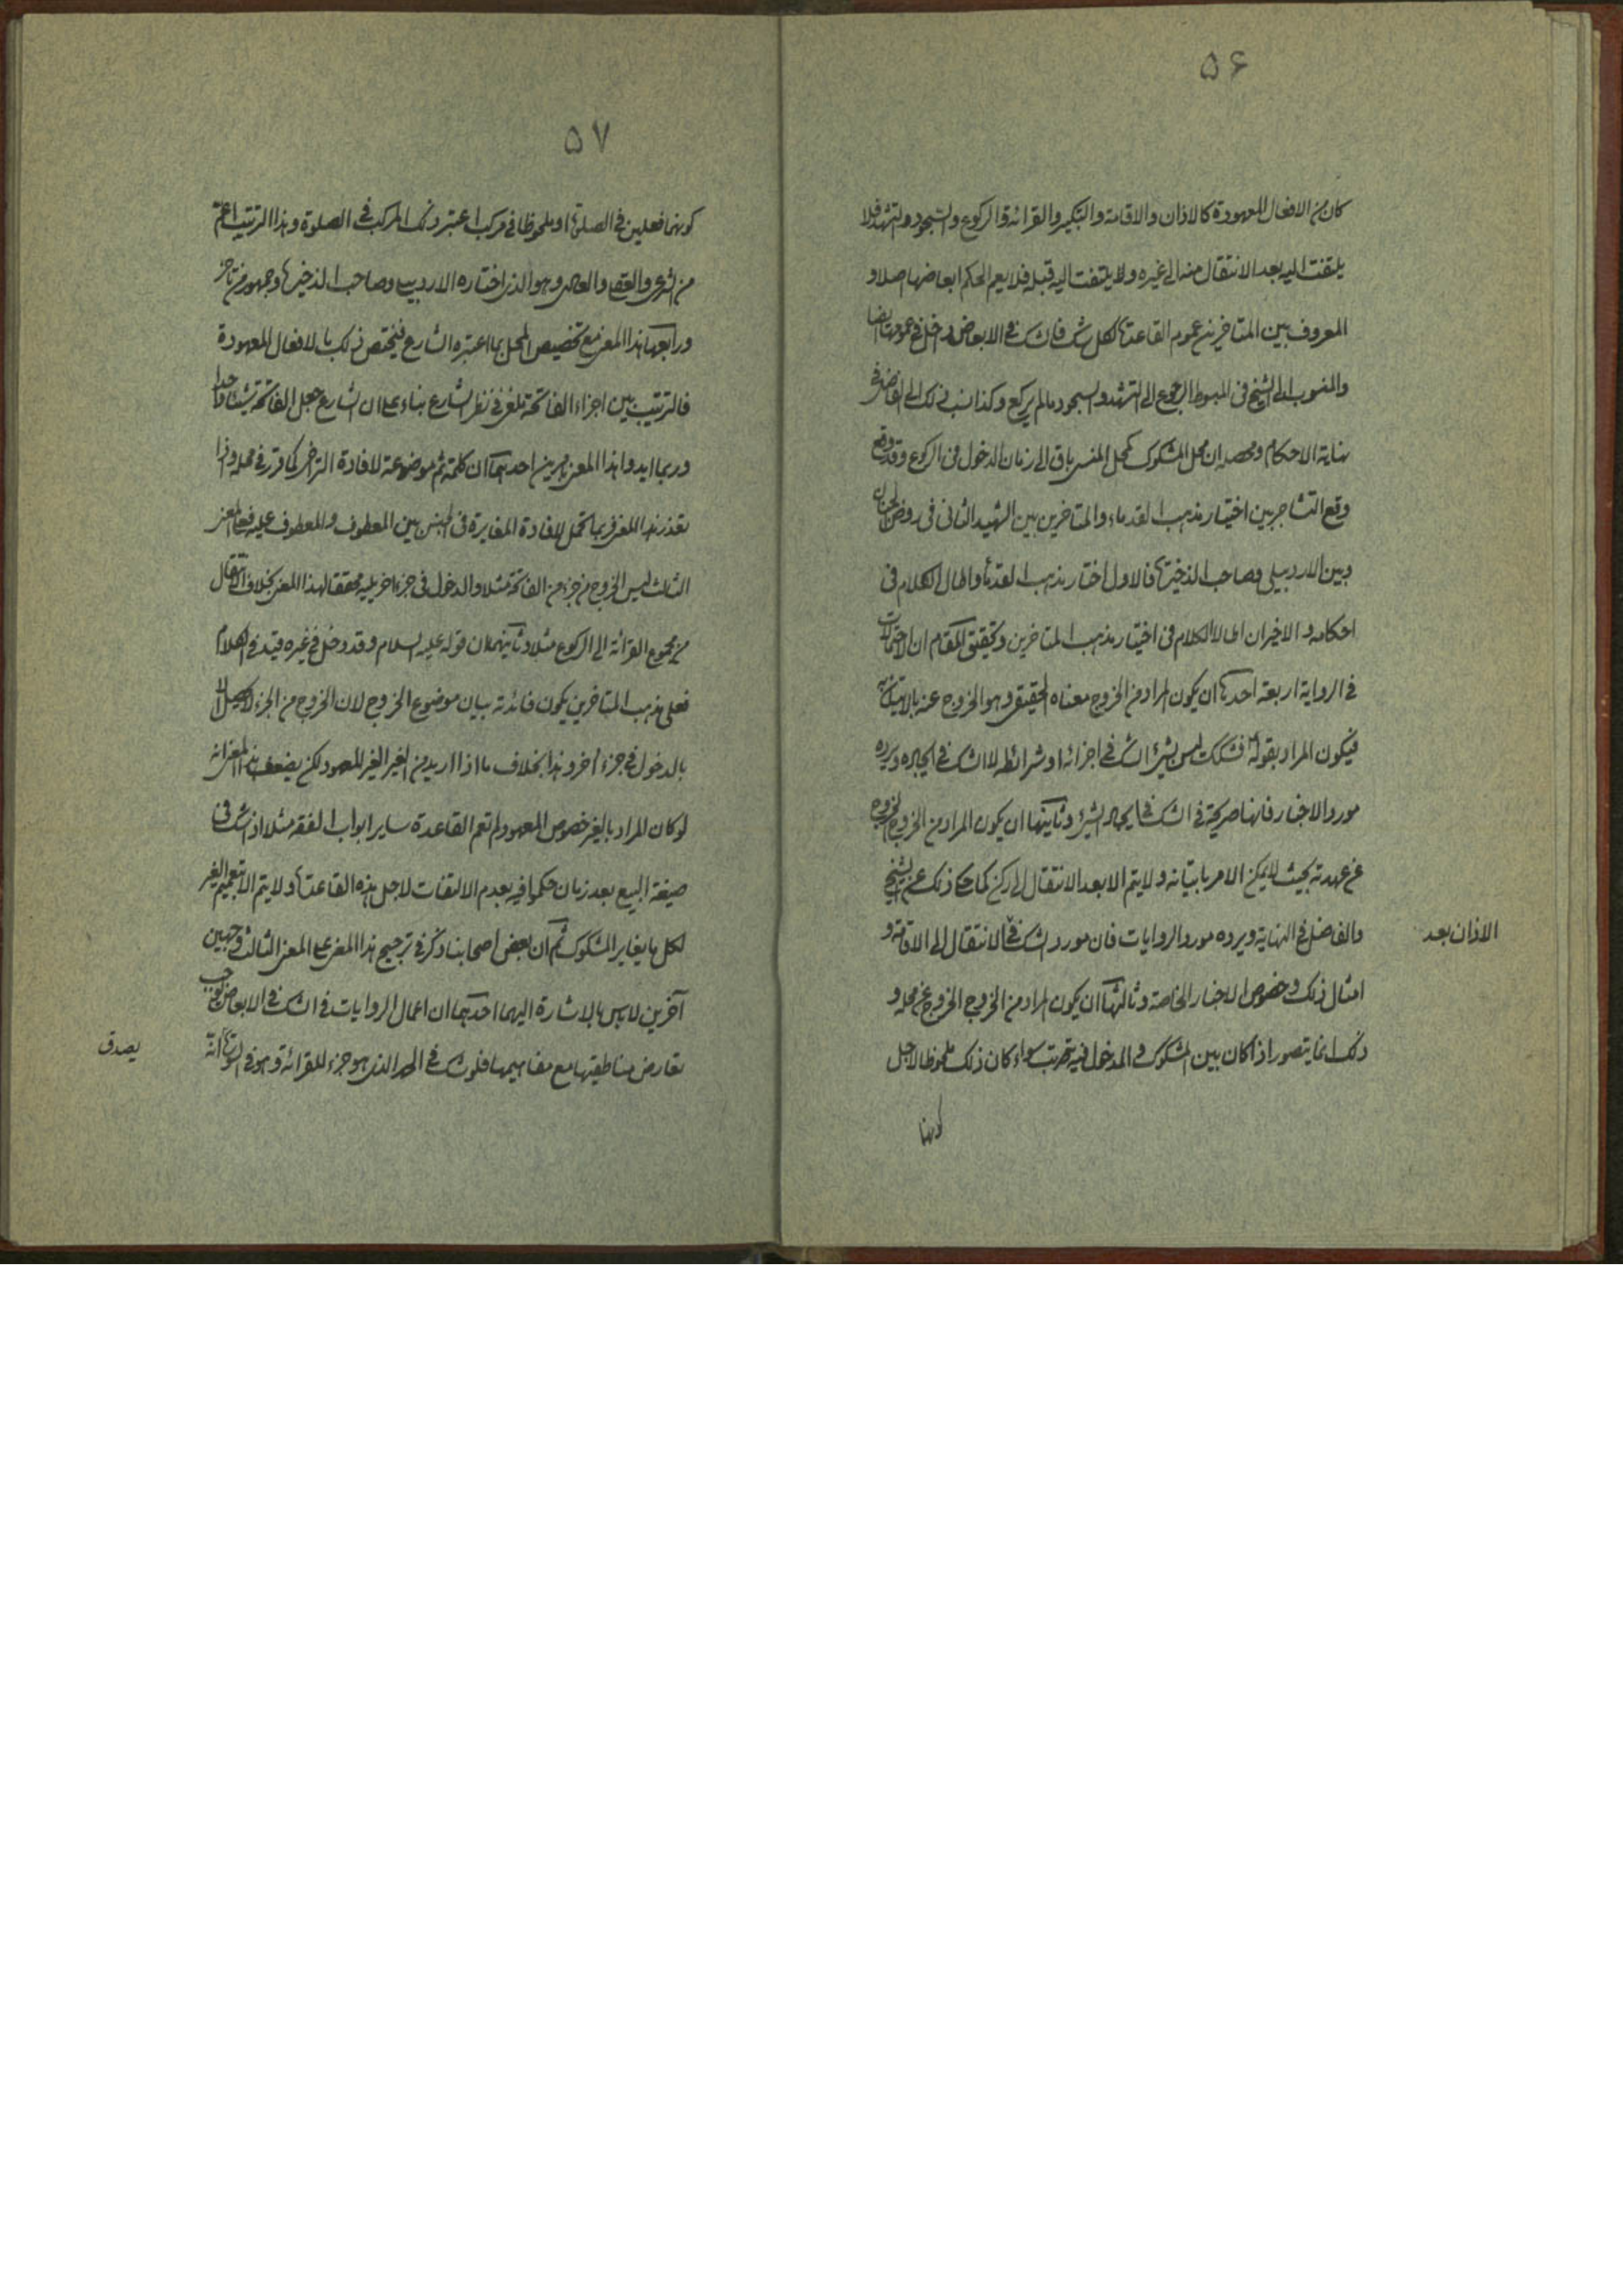 ۵۶
كان من الافعال المعهودة كالاذان والاقامة والتكبير والقرائة والركوع والسجود والتشهد فلا
يلتفت اليه بعد الانتقال منه الى غيره ولا يلتفت اليه قبله فلا يعم الحكم ابعاضها اصلا و
المعروف بين المتاخرين عموم القاعدة لكل شك فالشك في الابعاض داخل في عمومها ايضا
والمنسوب الى الشيخ في المبسوط الرجوع الى التشهد والسجود ما لم يركع وكذا نسب ذلك الى الفاضل في
نهاية الاحكام ومحصله ان محل المشكوك كمحل المنسي باق الى زمان الدخول في الركوع وقد وقع
وقع التشاجر بين اختيار مذهب القدماء والمتاخرين بين الشهيد الثاني في روض الجنان
وبين الاردبيلي وصاحب الذخيرة فالاول اختار مذهب القدماء واطال الكلام في
احكامه والاخيران اطالا الكلام في اختيار مذهب المتاخرين وتحقيق المقام ان الاحتمالات
في الرواية اربعة احدها ان يكون المراد من الخروج معناه الحقيقي وهو الخروج عنه بالاتيان به
فيكون المراد بقوله فشكك ليس بشئ الشك في اجزائه او شرائطه لا الشك في ايجاده ويرده
مورد الاخبار فانها صريحة في الشك في ايجاد الشئ وثانيها ان يكون المراد من الخروج الخروج
عن عهدته بحيث لا يمكن الامر باتيانه ولا يتم الا بعد الانتقال الى ركن كما حكا ذلك عن الشيخ
والفاضل في النهاية ويرده مورد الروايات فان مورد الشك في الانتقال الى الاقامة و
الاذان بعد
امثال ذلك وخصوص الاخبار الخاصة وثالثها ان يكون المراد من الخروج الخروج عن محله و
ذلك انما يتصور اذا كان بين المشكوك والمدخول فيه ترتيب سواء كان ذلك ملحوظا لاجل
كونهما
۵۷
كونهما فعلين في الصلوة او ملحوظا في مركب اعتبر ذلك المركب في الصلوة وهذا الترتيب اعم
من الشرعي والعقلي والعادي وهو الذي اختاره الاردبيلي وصاحب الذخيرة وجمهور من تاخر
ورابعها هذا المعنى مع تخصيص المحل بما اعتبره الشارع فيختص ذلك بالافعال المعهودة
فالترتيب بين اجزاء الفاتحة ملغى في نظر الشارع بناء على ان الشارع جعل الفاتحة شيئا واحدا
وربما ايدوا هذا المعنى بامرين احدهما ان كلمة ثم موضوعة لافادة التراخي كما قرر في محله واذا
تعذر هذا المعنى فربما تحمل لافادة المغايرة في الجنس بين المعطوف والمعطوف عليه فعلى المعنى
الثالث ليس الخروج من جزء من الفاتحة مثلا والدخول في جزء اخر يليه محققا لهذا المعنى بخلاف الانتقال
من مجموع القرائة الى الركوع مثلا وثانيهما ان قوله عليه السلام وقد دخل في غيره قيد في الكلام
فعلى مذهب المتاخرين يكون فائدته بيان موضوع الخروج لان الخروج من الجزء لا يحصل الا
بالدخول في جزء اخر وهذا بخلاف ما اذا اريد من الغير الغير المعهود لكن يضعف هذا المعنى انه
لو كان المراد بالغير خصوص المعهود لم تعم القاعدة ساير ابواب الفقه مثلا اذا شك في
صيغة البيع بعد زمان حكموا فيه بعدم الالتفات لاجل هذه القاعدة ولا يتم الا بتعميم الغير
لكل ما يغاير المشكوك ثم ان بعض اصحابنا ذكر في ترجيح هذا المعنى على المعنى الثالث وجهين
آخرين لا باس بالاشارة اليهما احدهما ان اعمال الروايات في الشك في الابعاض يوجب
تعارض مناطيقها مع مفاهيمها فلو شك في الحمد الذي هو جزء للقرائة وهو في السورة انه
يصدق